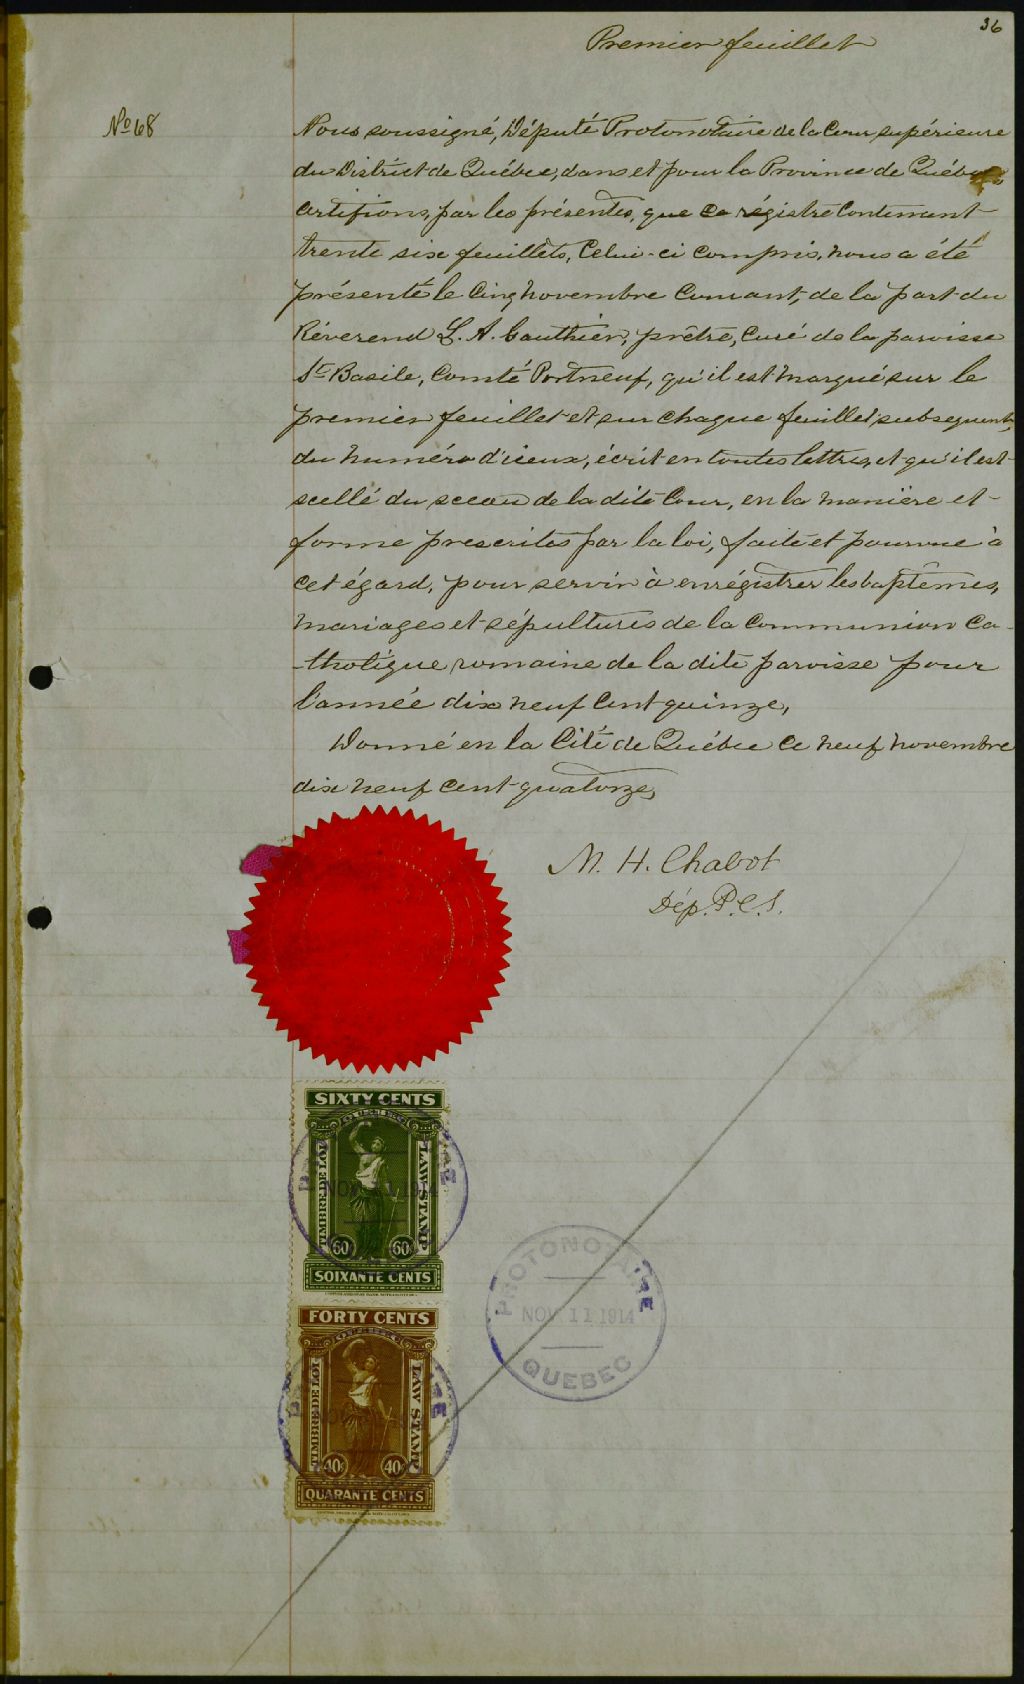 36
Premier feuillet
No 68
Nous soussigné, Député Protonotaire de la Cour supérieure
du District de Québec, dans et pour la Province de Québec
certifions, par les présentes, que ce régistre contenant
trente six feuillets, celui-ci compris, nous a été
présenté le cinq novembre courant, de la part du
Révérend L. A. Gauthier, prêtre, curé de la paroisse
St Basile, Comté Portneuf, qu'il est marqué sur le
premier feuillet et sur chaque feuillet subsequent,
du numéro d'iceux, écrit en toutes lettres, et qu'il est
scellé du sceau de la dite Cour, en la manière et
forme prescrites par la loi, faite et pourvue à
cet égard, pour servir à enrégistrer les baptêmes,
mariages et sépultures de la Communion Ca-
-tholique romaine de la dite paroisse pour
l'année dix neuf cent quinze,
Donné en la Cité de Québec ce neuf novembre
dix neuf cent quatorze,
M. H. Chabot
Dép. P. C. S.
SIXTY CENTS
TIMBRE DE LOI
LAW STAMP
NOV 11 1914
60 60
SOIXANTE CENTS
FORTY CENTS
TIMBRE DE LOI
LAW STAMP
40 40
QUARANTE CENTS
PROTONOTAIRE
NOV 11 1914
QUEBEC